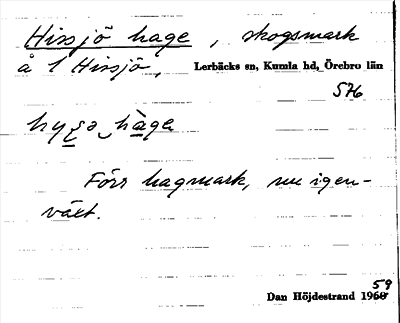 Hissjö hage, skogsmark
å 1 Hissjö, Lerbäcks sn, Kumla hd, Örebro län
576
hysə hàga
Förr hagmark, nu igen-
växt.
59
Dan Höjdestrand 1960